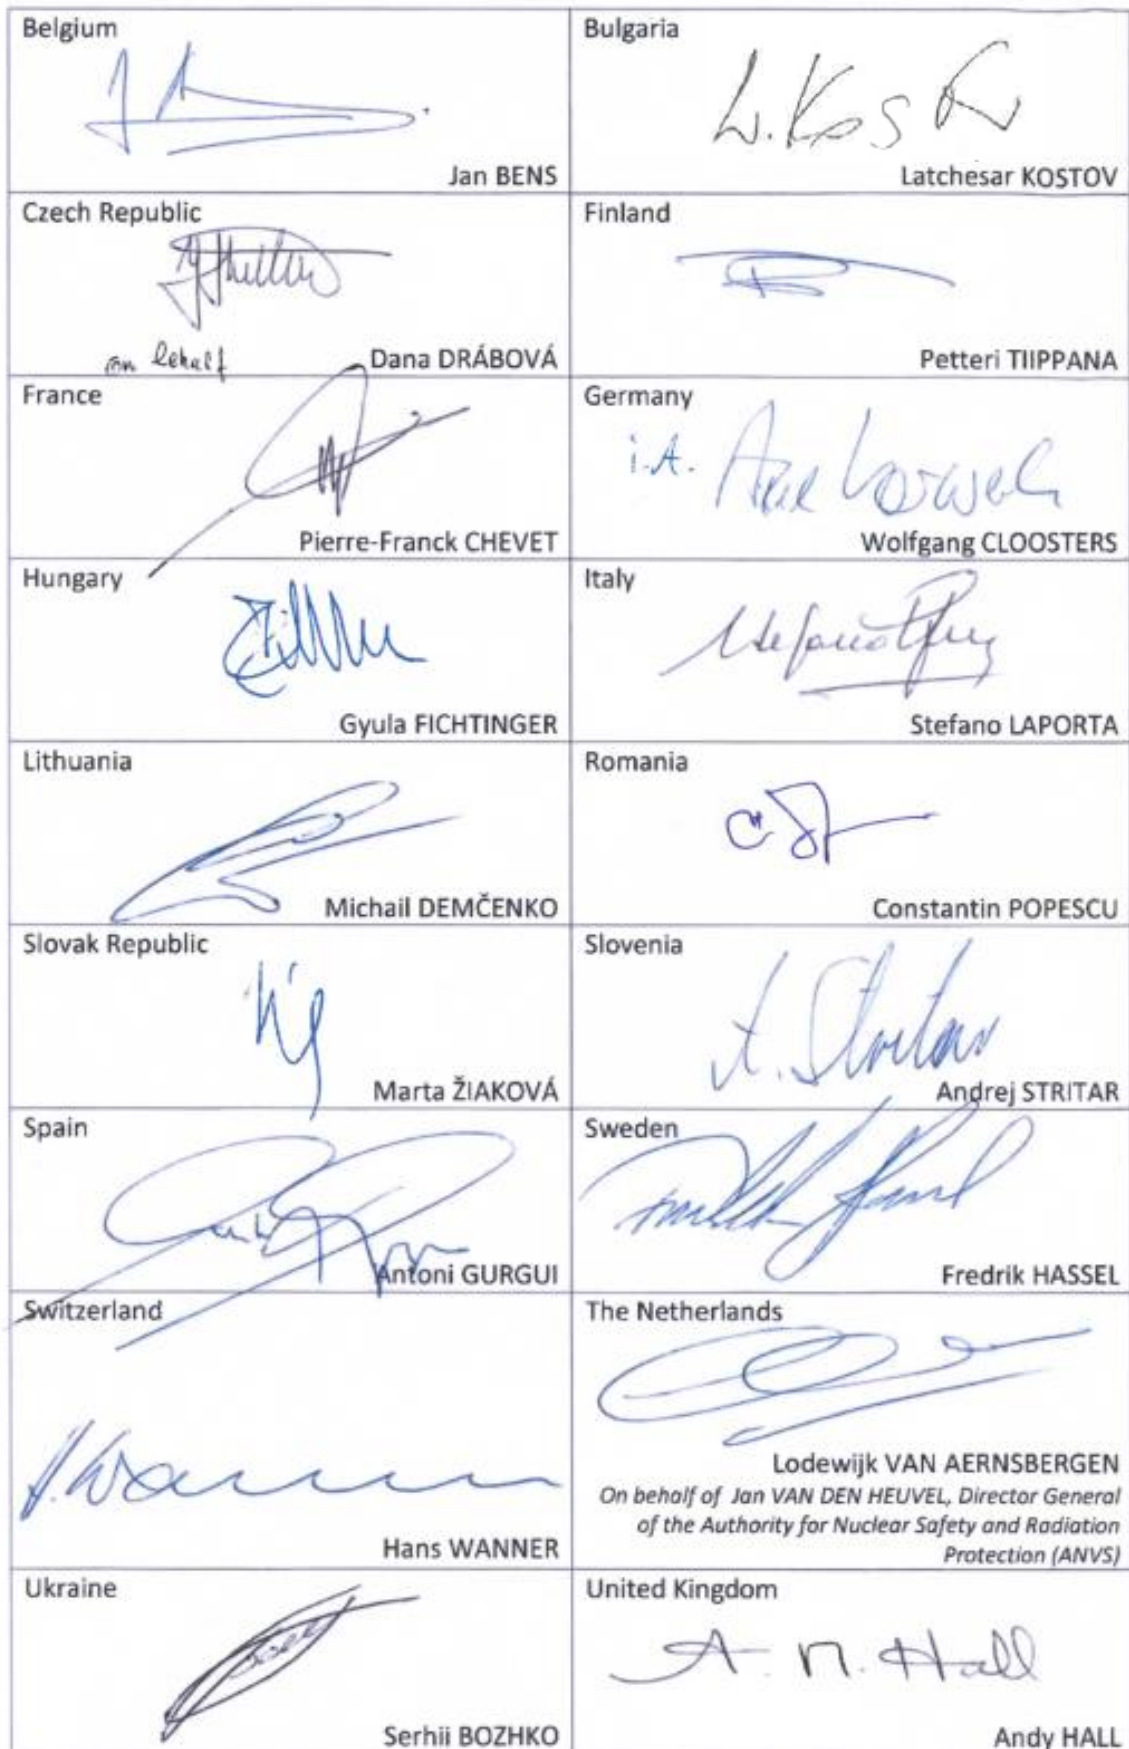 Belgium
Jan BENS
Bulgaria
L. Kostov
Latchesar KOSTOV
Czech Republic
on behalf
Dana DRÁBOVÁ
Finland
Petteri TIIPPANA
France
Pierre-Franck CHEVET
Germany
i.A.
Wolfgang CLOOSTERS
Hungary
Gyula FICHTINGER
Italy
Stefano LAPORTA
Lithuania
Michail DEMČENKO
Romania
Constantin POPESCU
Slovak Republic
Marta ŽIAKOVÁ
Slovenia
A. Stritar
Andrej STRITAR
Spain
Antoni GURGUI
Sweden
Fredrik HASSEL
Switzerland
H. Wanner
Hans WANNER
The Netherlands
Lodewijk VAN AERNSBERGEN
On behalf of Jan VAN DEN HEUVEL, Director General
of the Authority for Nuclear Safety and Radiation
Protection (ANVS)
Ukraine
Serhii BOZHKO
United Kingdom
A. M. Hall
Andy HALL